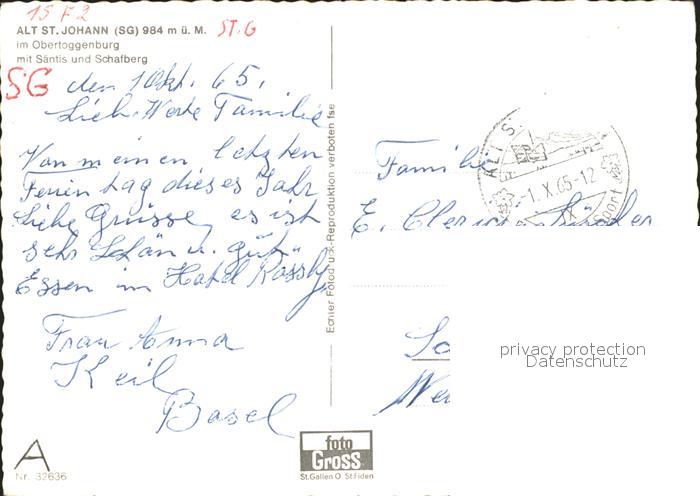 15 F 2
ALT ST. JOHANN (SG) 984 m ü. M. ST.G
im Obertoggenburg
mit Säntis und Schafberg
SG den 1 Okt. 65.
Lieb. Werte Familie
Von meinen letzten
Ferientag dieses Jahr
Liebe Grüsse, es ist
sehr Schön u. gut
Essen im Hotel Rössly
Frau Anna
Keil
Basel
A
Nr. 32636
Echter Fotodruck-Reproduktion verboten
foto
Gross
St.Gallen O St.Fiden
ALT S
-1.X.65-12
Sport
Familie
E.
privacy protection
Datenschutz